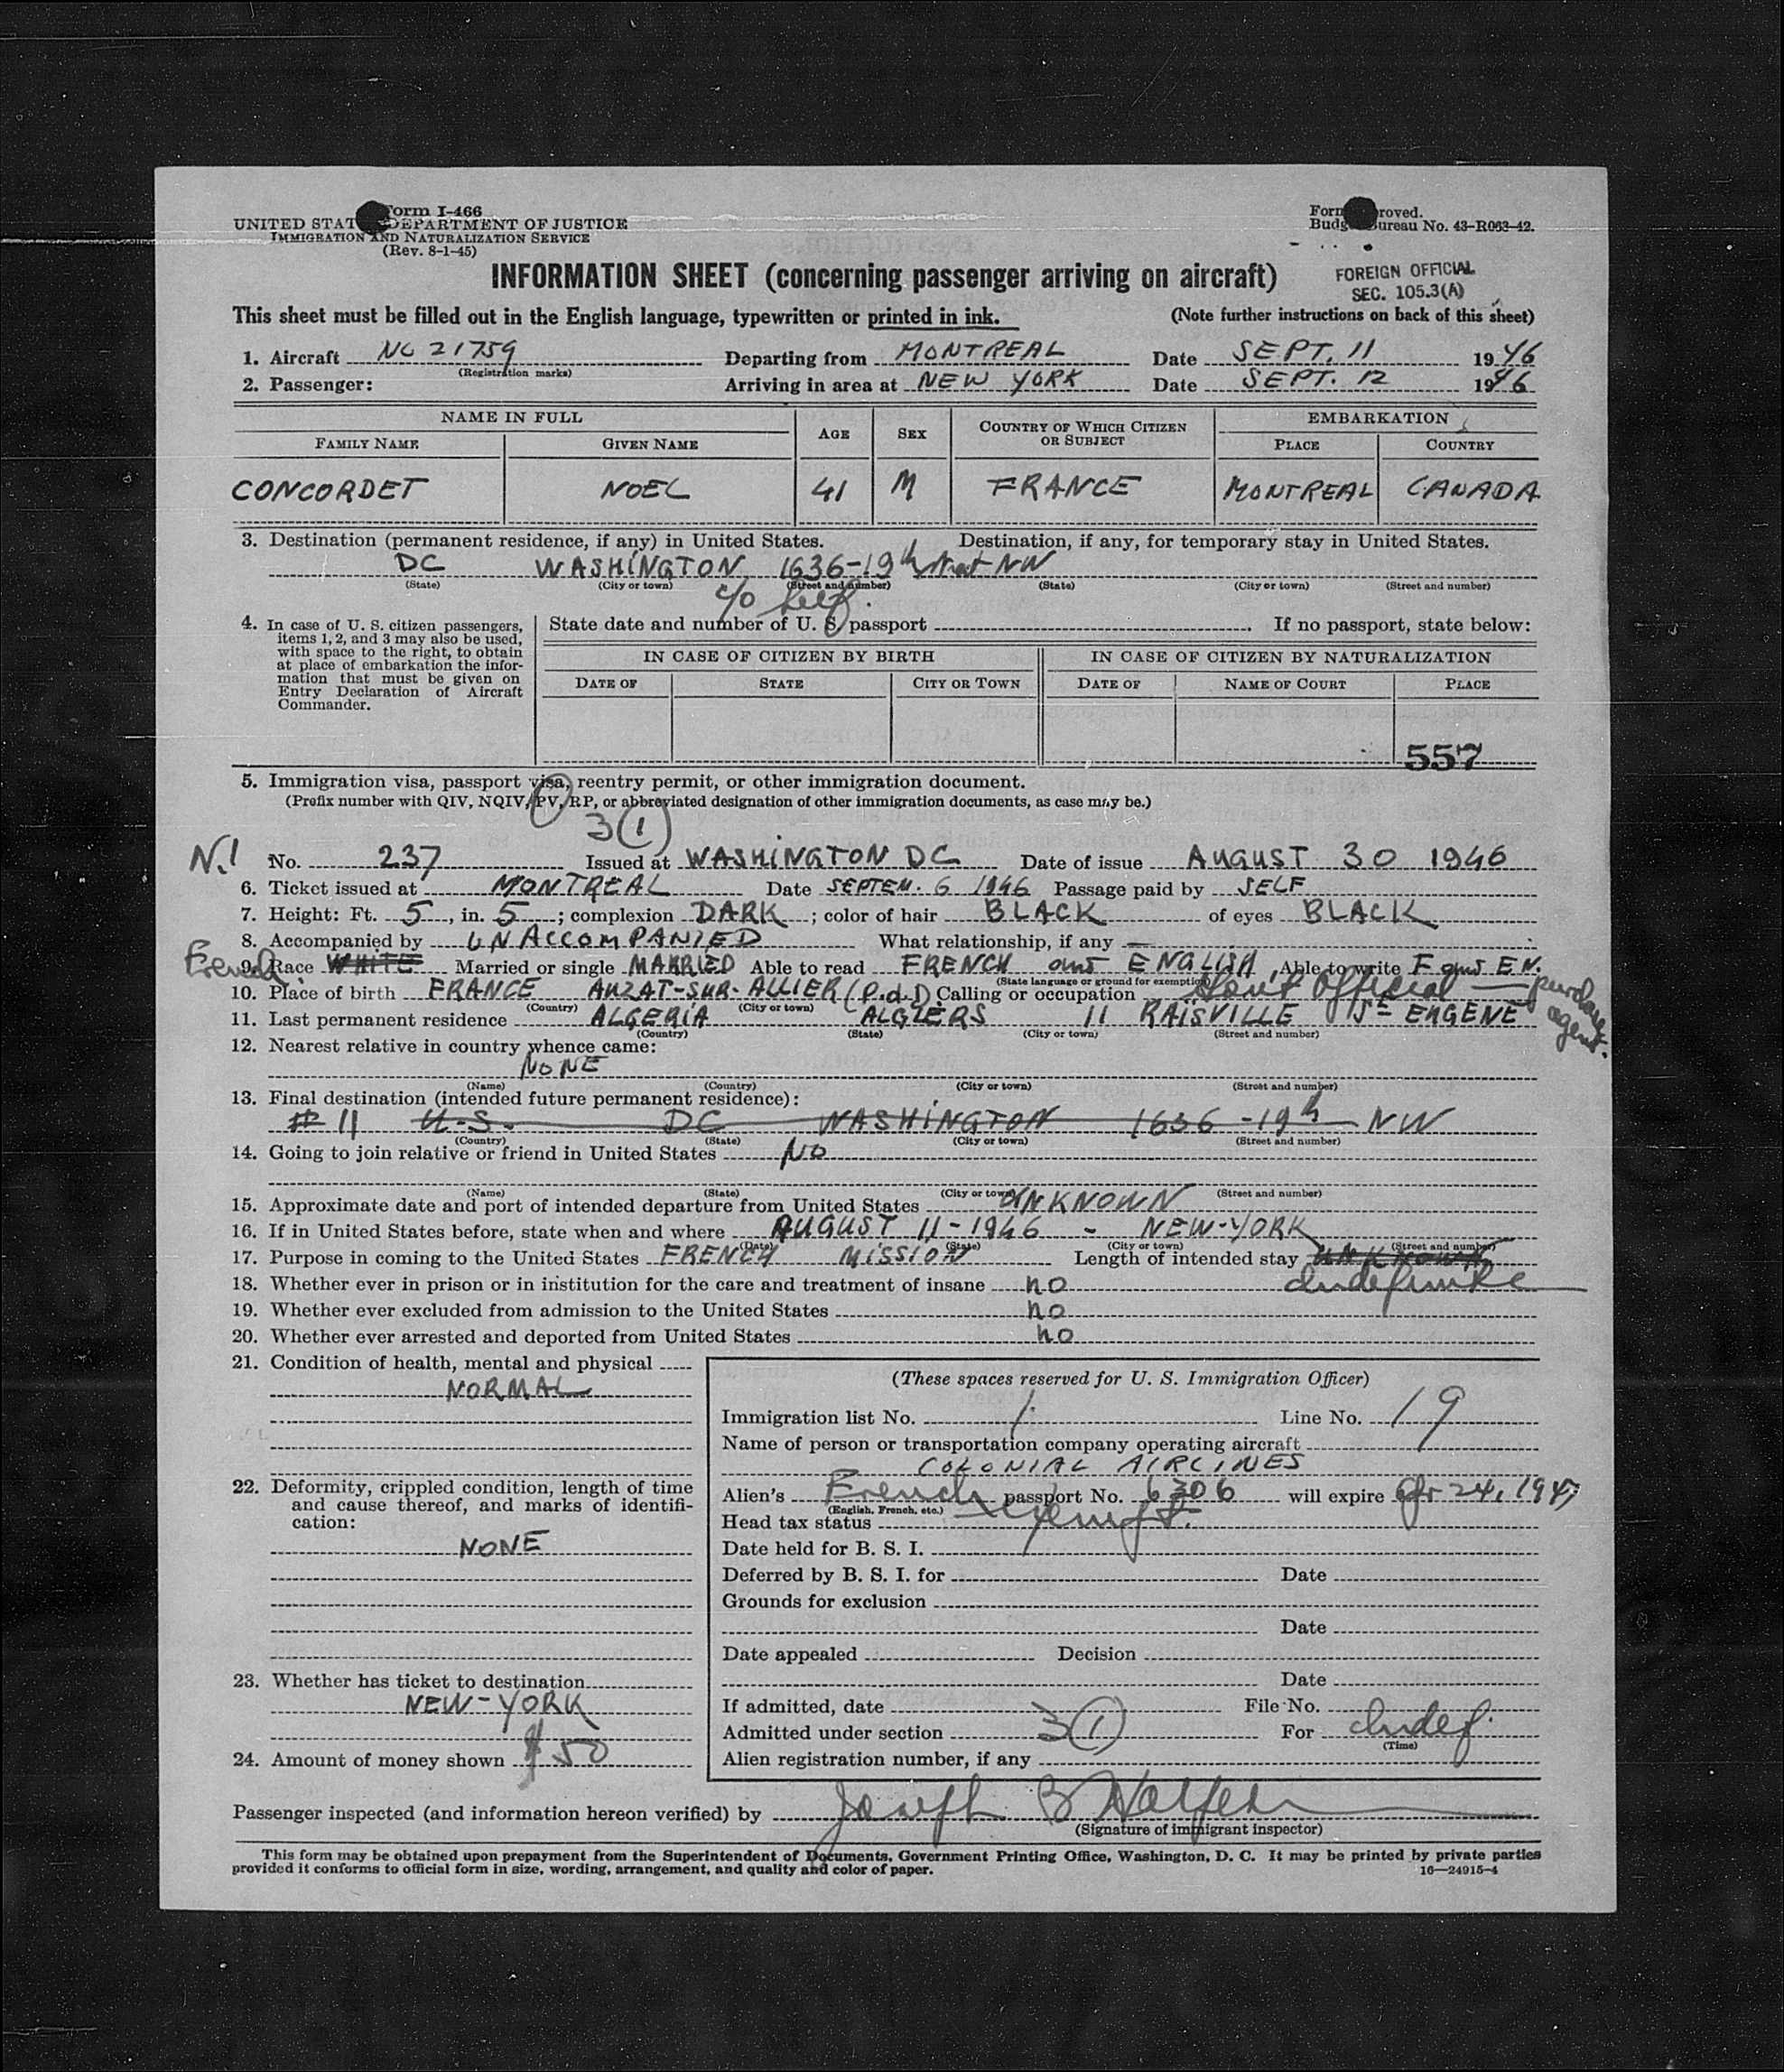 Form I-466
UNITED STATES DEPARTMENT OF JUSTICE
IMMIGRATION AND NATURALIZATION SERVICE
(Rev. 8-1-45)
Form Approved.
Budget Bureau No. 43-R063-42.
INFORMATION SHEET (concerning passenger arriving on aircraft)
FOREIGN OFFICIAL
SEC. 105.3(A)
This sheet must be filled out in the English language, typewritten or printed in ink. (Note further instructions on back of this sheet)
1. Aircraft NC 21759 Departing from MONTREAL Date SEPT. 11 1946
(Registration marks)
2. Passenger: Arriving in area at NEW YORK Date SEPT. 12 1946
NAME IN FULL AGE SEX COUNTRY OF WHICH CITIZEN OR SUBJECT EMBARKATION
FAMILY NAME GIVEN NAME PLACE COUNTRY
CONCORDET NOEL 41 M FRANCE MONTREAL CANADA
3. Destination (permanent residence, if any) in United States. Destination, if any, for temporary stay in United States.
DC WASHINGTON 1636-19th street NW
(State) (City or town) (Street and number) (State) (City or town) (Street and number)
c/o self.
4. In case of U. S. citizen passengers, items 1, 2, and 3 may also be used, with space to the right, to obtain at place of embarkation the information that must be given on Entry Declaration of Aircraft Commander.
State date and number of U. S. passport If no passport, state below:
IN CASE OF CITIZEN BY BIRTH IN CASE OF CITIZEN BY NATURALIZATION
DATE OF STATE CITY OR TOWN DATE OF NAME OF COURT PLACE
557
5. Immigration visa, passport visa, reentry permit, or other immigration document.
(Prefix number with QIV, NQIV, PV, RP, or abbreviated designation of other immigration documents, as case may be.)
3(1)
N.I No. 237 Issued at WASHINGTON DC Date of issue AUGUST 30 1946
6. Ticket issued at MONTREAL Date SEPTEM. 6 1946 Passage paid by SELF
7. Height: Ft. 5, in. 5; complexion DARK; color of hair BLACK of eyes BLACK
8. Accompanied by UNACCOMPANIED What relationship, if any —
French
9. Race WHITE Married or single MARRIED Able to read FRENCH and ENGLISH Able to write F and EN.
(State language or ground for exemption)
10. Place of birth FRANCE AUZAT-SUR-ALLIER (P.d.D) Calling or occupation Govt Official — purchase agent.
(Country) (City or town)
11. Last permanent residence ALGERIA ALGIERS 11 RAISVILLE St EUGENE
(Country) (State) (City or town) (Street and number)
12. Nearest relative in country whence came:
NONE
(Name) (Country) (City or town) (Street and number)
13. Final destination (intended future permanent residence):
#11 U.S. DC WASHINGTON 1636-19th NW
(Country) (State) (City or town) (Street and number)
14. Going to join relative or friend in United States NO
(Name) (State) (City or town) (Street and number)
15. Approximate date and port of intended departure from United States UNKNOWN
16. If in United States before, state when and where AUGUST 11-1946 - NEW-YORK
(Date) (State) (City or town) (Street and number)
17. Purpose in coming to the United States FRENCH MISSION Length of intended stay UNKNOWN
Indefinite
18. Whether ever in prison or in institution for the care and treatment of insane no
19. Whether ever excluded from admission to the United States no
20. Whether ever arrested and deported from United States no
21. Condition of health, mental and physical
NORMAL
22. Deformity, crippled condition, length of time and cause thereof, and marks of identification:
NONE
23. Whether has ticket to destination
NEW-YORK
24. Amount of money shown $50
(These spaces reserved for U. S. Immigration Officer)
Immigration list No. 1 Line No. 19
Name of person or transportation company operating aircraft
COLONIAL AIRLINES
Alien's French passport No. 6306 will expire Apr 24, 1947
(English, French, etc.)
Head tax status exempt.
Date held for B. S. I.
Deferred by B. S. I. for Date
Grounds for exclusion
Date
Date appealed Decision
Date
If admitted, date File No.
Admitted under section 3(1) For Indef.
(Time)
Alien registration number, if any
Passenger inspected (and information hereon verified) by Joseph B
(Signature of immigrant inspector)
This form may be obtained upon prepayment from the Superintendent of Documents, Government Printing Office, Washington, D. C. It may be printed by private parties
provided it conforms to official form in size, wording, arrangement, and quality and color of paper. 16—24915-4